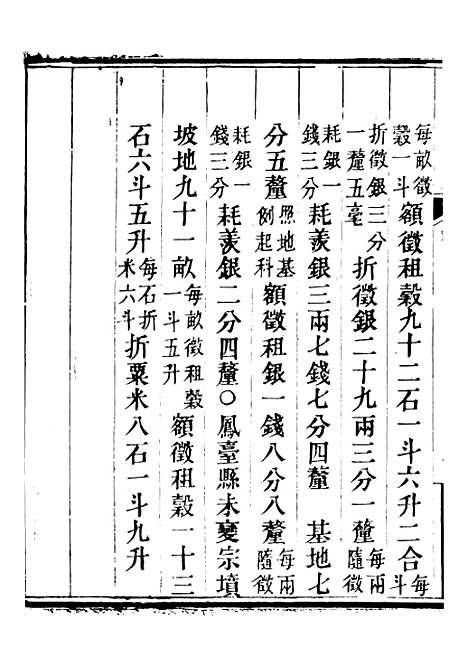 每畝徵穀一斗額徵租穀九十二石一斗六升二合每斗
折徵銀三分一釐五毫折徵銀二十九兩三分一釐每兩隨徵
耗銀一錢三分耗羨銀三兩七錢七分四釐 基地七
分五釐照地基例起科額徵租銀一錢八分八釐每兩隨徵
耗銀一錢三分耗羨銀二分四釐○鳳臺縣未變宗墳
坡地九十一畝每畝徵租穀一斗五升額徵租穀一十三
石六斗五升每石折米六斗折粟米八石一斗九升